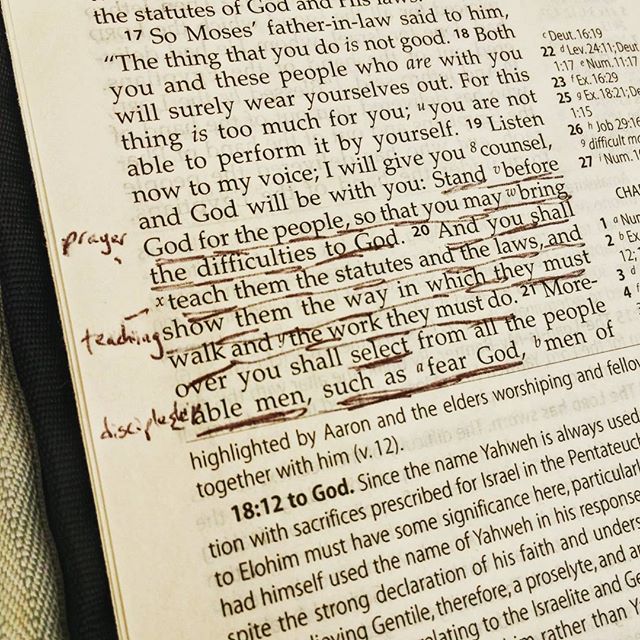 the statutes of God and His laws.
17 So Moses' father-in-law said to him,
"The thing that you do is not good. 18 Both
you and these people who are with you
will surely wear yourselves out. For this
thing is too much for you; u you are not
able to perform it by yourself. 19 Listen
now to my voice; I will give you 8 counsel,
and God will be with you: Stand v before
God for the people, so that you may w bring
the difficulties to God. 20 And you shall
x teach them the statutes and the laws, and
show them the way in which they must
walk and y the work they must do. 21 More-
over you shall select from all the people
able men, such as a fear God, b men of
prayer
teaching
disciple
highlighted by Aaron and the elders worshiping and
together with him (v. 12).
18:12 to God. Since the name Yahweh is always used
tion with sacrifices prescribed for Israel in the
to Elohim must have some significance here,
had himself used the name of Yahweh in his
spite the strong declaration of his faith and
Gentile, therefore, a proselyte, and
to the Israelite and
rather than
c Deut. 16:19
22 d Lev. 24:11;
1:17 e Num. 11:17
23 f Ex. 16:29
25 g Ex. 18:21;
1:15
26 h Job 29:16
9 difficult
27 i Num.
1 a
2 b Ex
12;
3 c
4